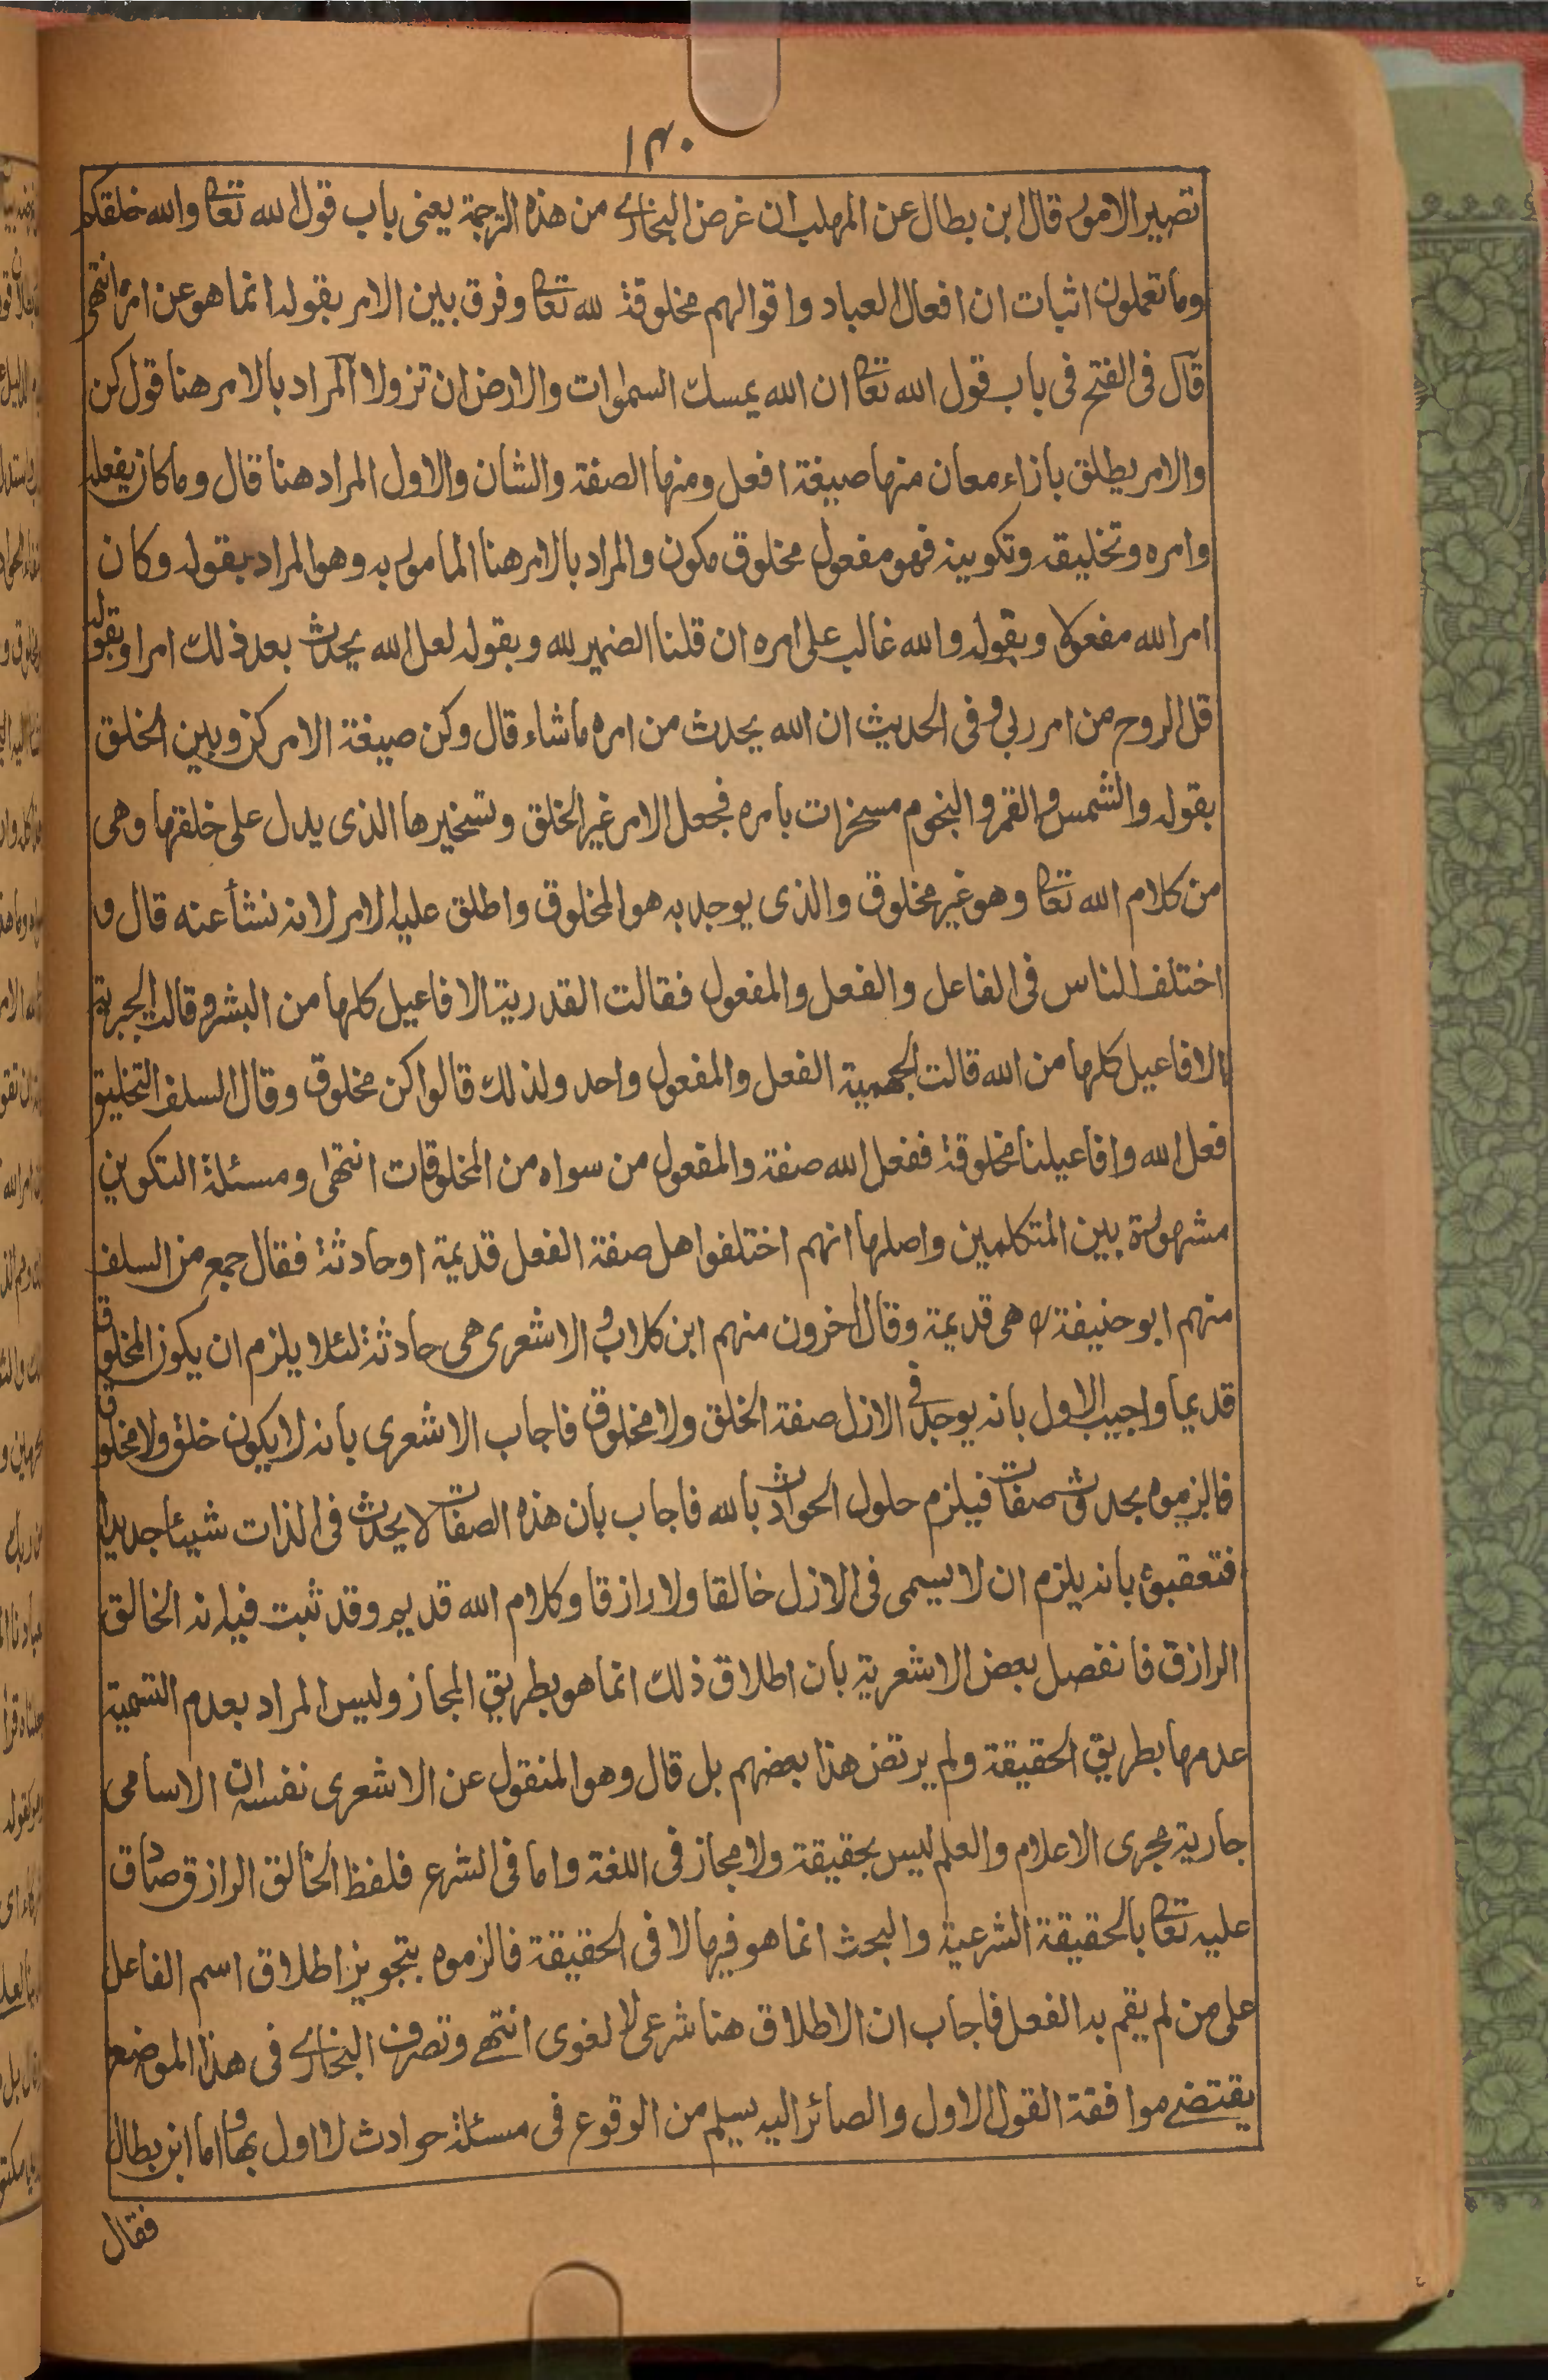 ١٣٠
تصير الامور قال ابن بطال عن المهلب ان غرض البخاري من هذه الترجمة يعنى باب قول الله تعالى والله خلقكم
وما تعملون اثبات ان افعال العباد واقوالهم مخلوقة لله تعالى وفرق بين الامر بقوله انما هو عن امره انتهى
قال فى الفتح فى باب قول الله تعالى ان الله يمسك السموات والارض ان تزولا المراد بالامر هنا قول كن
والامر يطلق بازاء معان منها صيغة افعل ومنها الصفة والشان والاول المراد هنا قال وما كان بفعله
وامره وتخليقه وتكوينه فهو مفعول مخلوق مكون والمراد بالامر هنا المامور به وهو المراد بقوله وكان
امر الله مفعولا وبقوله والله غالب على امره ان قلنا الضمير لله وبقوله لعل الله يحدث بعد ذلك امرا وبقوله
قل الروح من امر ربي وفى الحديث ان الله يحدث من امره ما شاء قال وكن صيغة الامر كن وبين الخلق
بقوله والشمس والقمر والنجوم مسخرات بامره فجعل الامر غير الخلق وتسخيرها الذى يدل على خلقها وهى
من كلام الله تعالى وهو غير مخلوق والذى يوجد به هو المخلوق واطلق عليه الامر لانه ننشأ عنه قال و
اختلف الناس فى الفاعل والفعل والمفعول فقالت القدرية الافاعيل كلها من البشر وقالت الجبرية
الافاعيل كلها من الله قالت الجهمية الفعل والمفعول واحد ولذلك قالوا كن مخلوق وقال السلف التخليق
فعل الله وافاعيلنا مخلوقة ففعل الله صفة والمفعول من سواه من المخلوقات انتهى ومسئلة التكوين
مشهورة بين المتكلمين واصلها انهم اختلفوا هل صفة الفعل قديمة او حادثة فقال جمع من السلف
منهم ابو حنيفة رح هى قديمة وقال اخرون منهم ابن كلاب والاشعرى هى حادثة لئلا يلزم ان يكون المخلوق
قديما واجيب الاول بانه يوجد فى الازل صفة الخلق ولا مخلوق فاجاب الاشعرى بانه لا يكون خلق ولا مخلوق
فالزموه بحدوث صفات فيلزم حلول الحوادث بالله فاجاب بان هذه الصفات لا يحدث فى الذات شيئا جديدا
فتعقبوه بانه يلزم ان لا يسمى فى الازل خالقا ولا رازقا وكلام الله قديم وقد ثبت فيه انه الخالق
الرازق فانفصل بعض الاشعرية بان اطلاق ذلك انما هو بطريق المجاز وليس المراد بعدم التسمية
عدمها بطريق الحقيقة ولم يرتض هذا بعضهم بل قال وهو المنقول عن الاشعرى نفسه ان الاسامى
جارية مجرى الاعلام والعلم ليس بحقيقة ولا مجاز فى اللغة واما فى الشرع فلفظ الخالق الرازق صادق
عليه تعالى بالحقيقة الشرعية والبحث انما هو فيها لا فى الحقيقة فالزموه بتجويز اطلاق اسم الفاعل
على من لم يقم به الفعل فاجاب ان الاطلاق هنا شرعى لا لغوى انتهى وتصرف البخاري فى هذا الموضع
يقتضى موافقة القول الاول والصائر اليه يسلم من الوقوع فى مسئلة حوادث لا اول بها واما ابن بطال
فقال